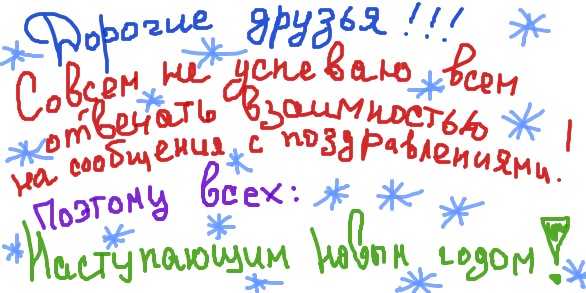 Дорогие друзья!!!
Совсем не успеваю всем
отвечать взаимностью
на сообщения с поздравлениями!
Поэтому всех:
Наступающим новын годом!